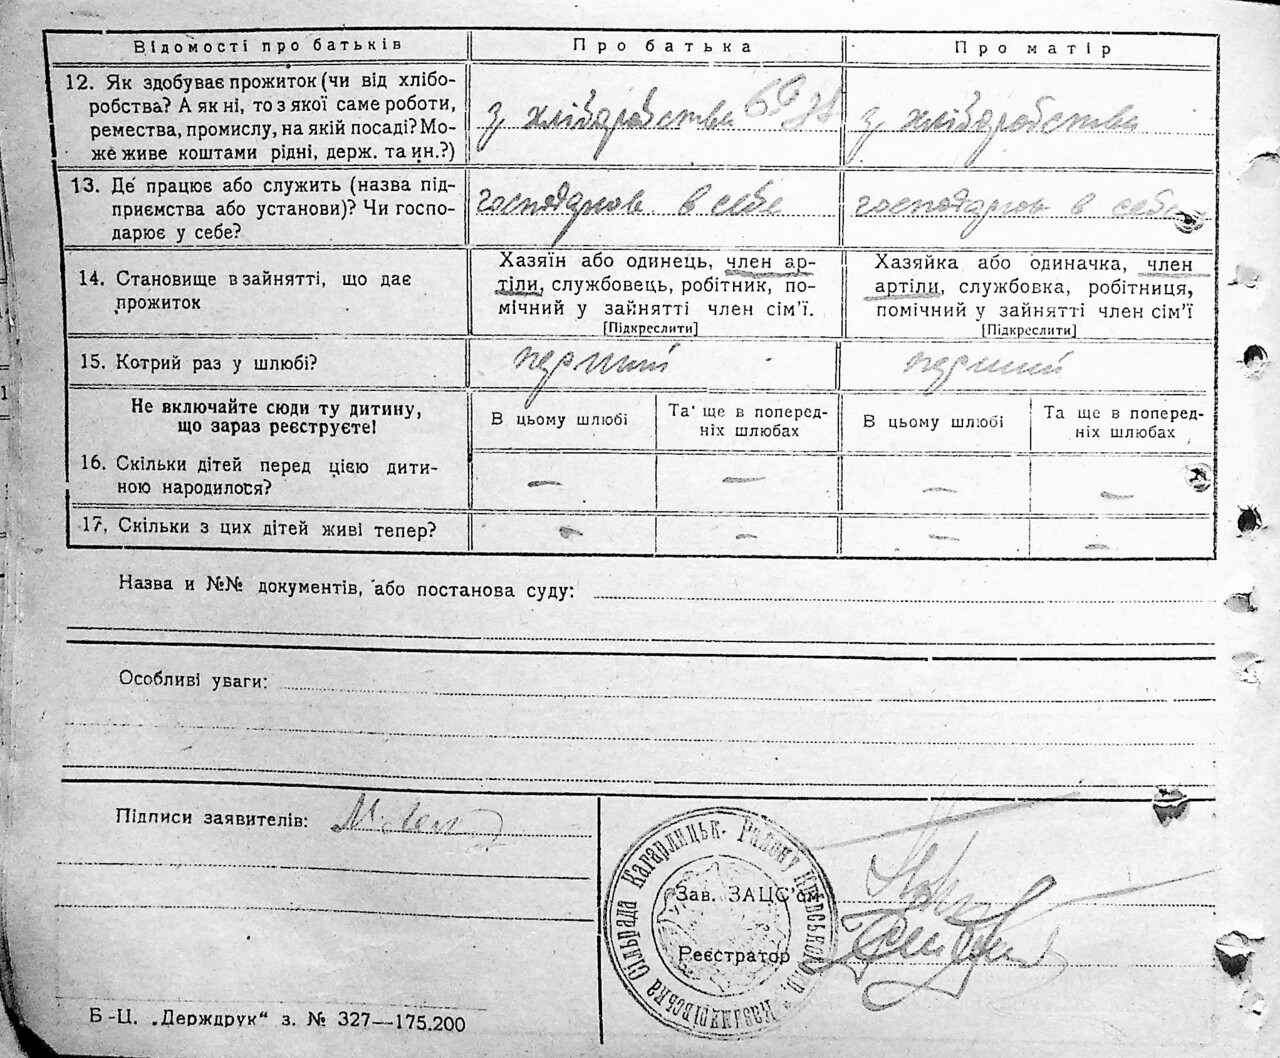 Відомості про батьків
Про батька
Про матір
12. Як здобуває прожиток (чи від хлібо-
робства? А як ні, то з якої саме роботи,
ремества, промислу, на якій посаді? Мо-
же живе коштами рідні, держ. та ин.?)
з хліборобства
з хліборобства
13. Де працює або служить (назва під-
приємства або установи)? Чи госпо-
дарює у себе?
господарює в себе
господарює в себе
14. Становище в зайнятті, що дає
прожиток
Хазяїн або одинець, член ар-
тіли, службовець, робітник, по-
мічний у зайнятті член сім'ї.
[Підкреслити]
Хазяйка або одиначка, член
артіли, службовка, робітниця,
помічний у зайнятті член сім'ї
[Підкреслити]
15. Котрий раз у шлюбі?
перший
перший
Не включайте сюди ту дитину,
що зараз реєструєте!
В цьому шлюбі
Та ще в поперед-
ніх шлюбах
В цьому шлюбі
Та ще в поперед-
ніх шлюбах
16. Скільки дітей перед цією дити-
ною народилося?
— — — —
17. Скільки з цих дітей живі тепер?
— — — —
Назва и №№ документів, або постанова суду:
Особливі уваги:
Підписи заявителів:
Зав. ЗАЦС'ом
Реєстратор
сільрада Кагарлицьк. Району Київської
Б-Ц. „Держдрук" з. № 327—175.200